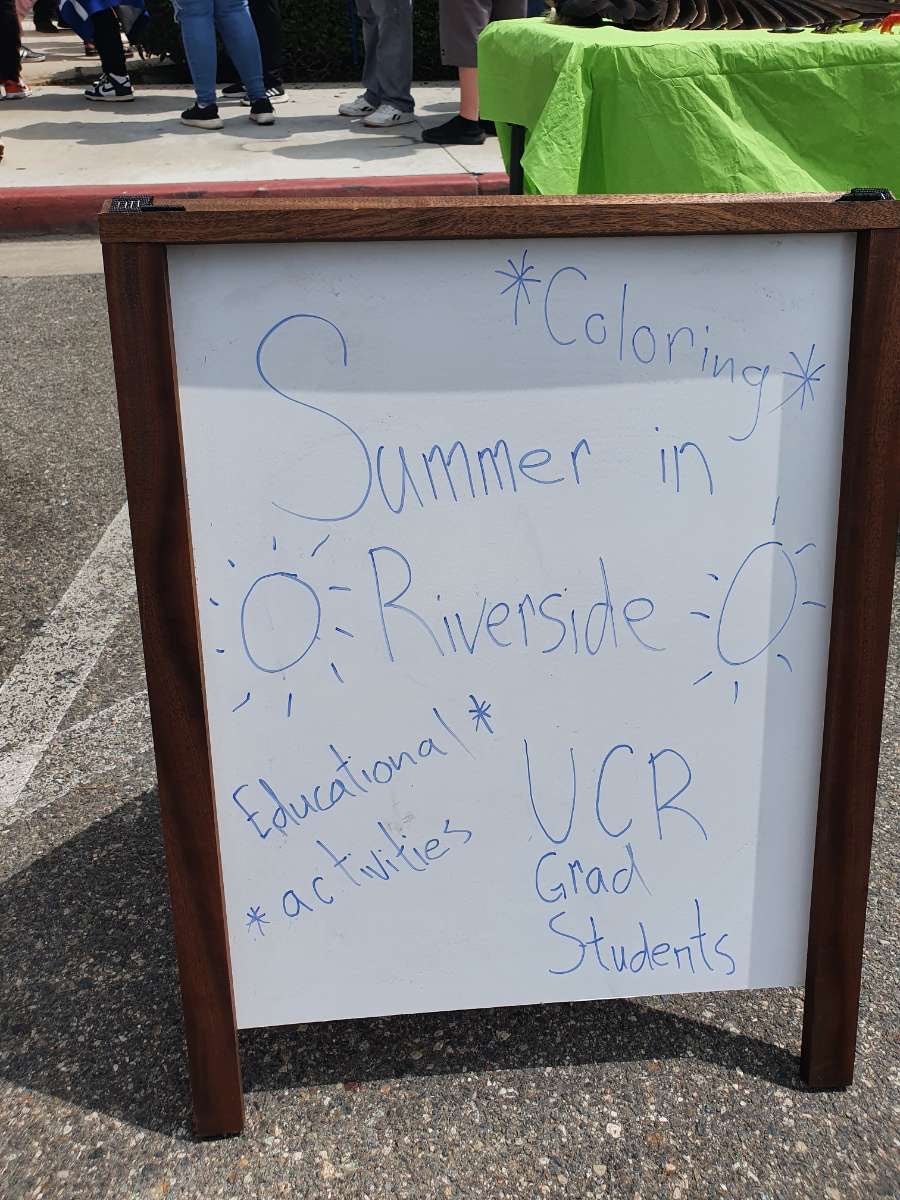 *Coloring*
Summer in
Riverside
Educational*
*activities
UCR
Grad
Students